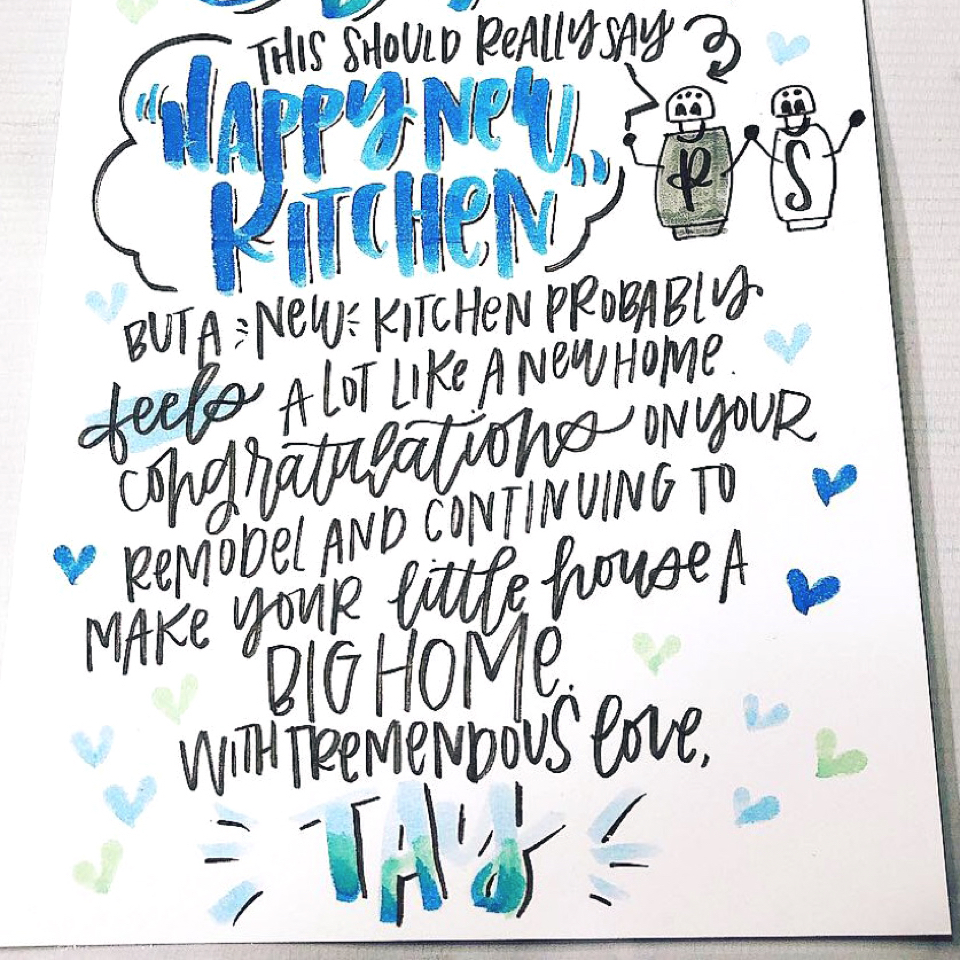 THIS SHOULD REALLY SAY
"HAPPY NEW
KITCHEN"
P S
BUT A NEW KITCHEN PROBABLY
feels A LOT LIKE A NEW HOME.
congratulations ON YOUR
REMODEL AND CONTINUING TO
MAKE YOUR little house A
BIG HOME.
WITH TREMENDOUS love,
TAY